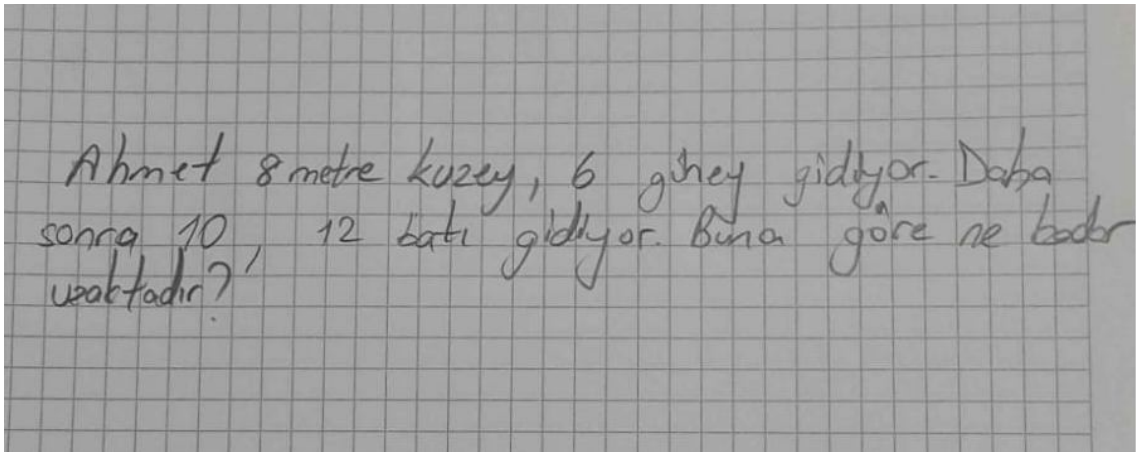 Ahmet 8 metre kuzey, 6 güney gidiyor. Daha
sonra 10, 12 batı gidiyor. Buna göre ne kadar
uzaktadır?